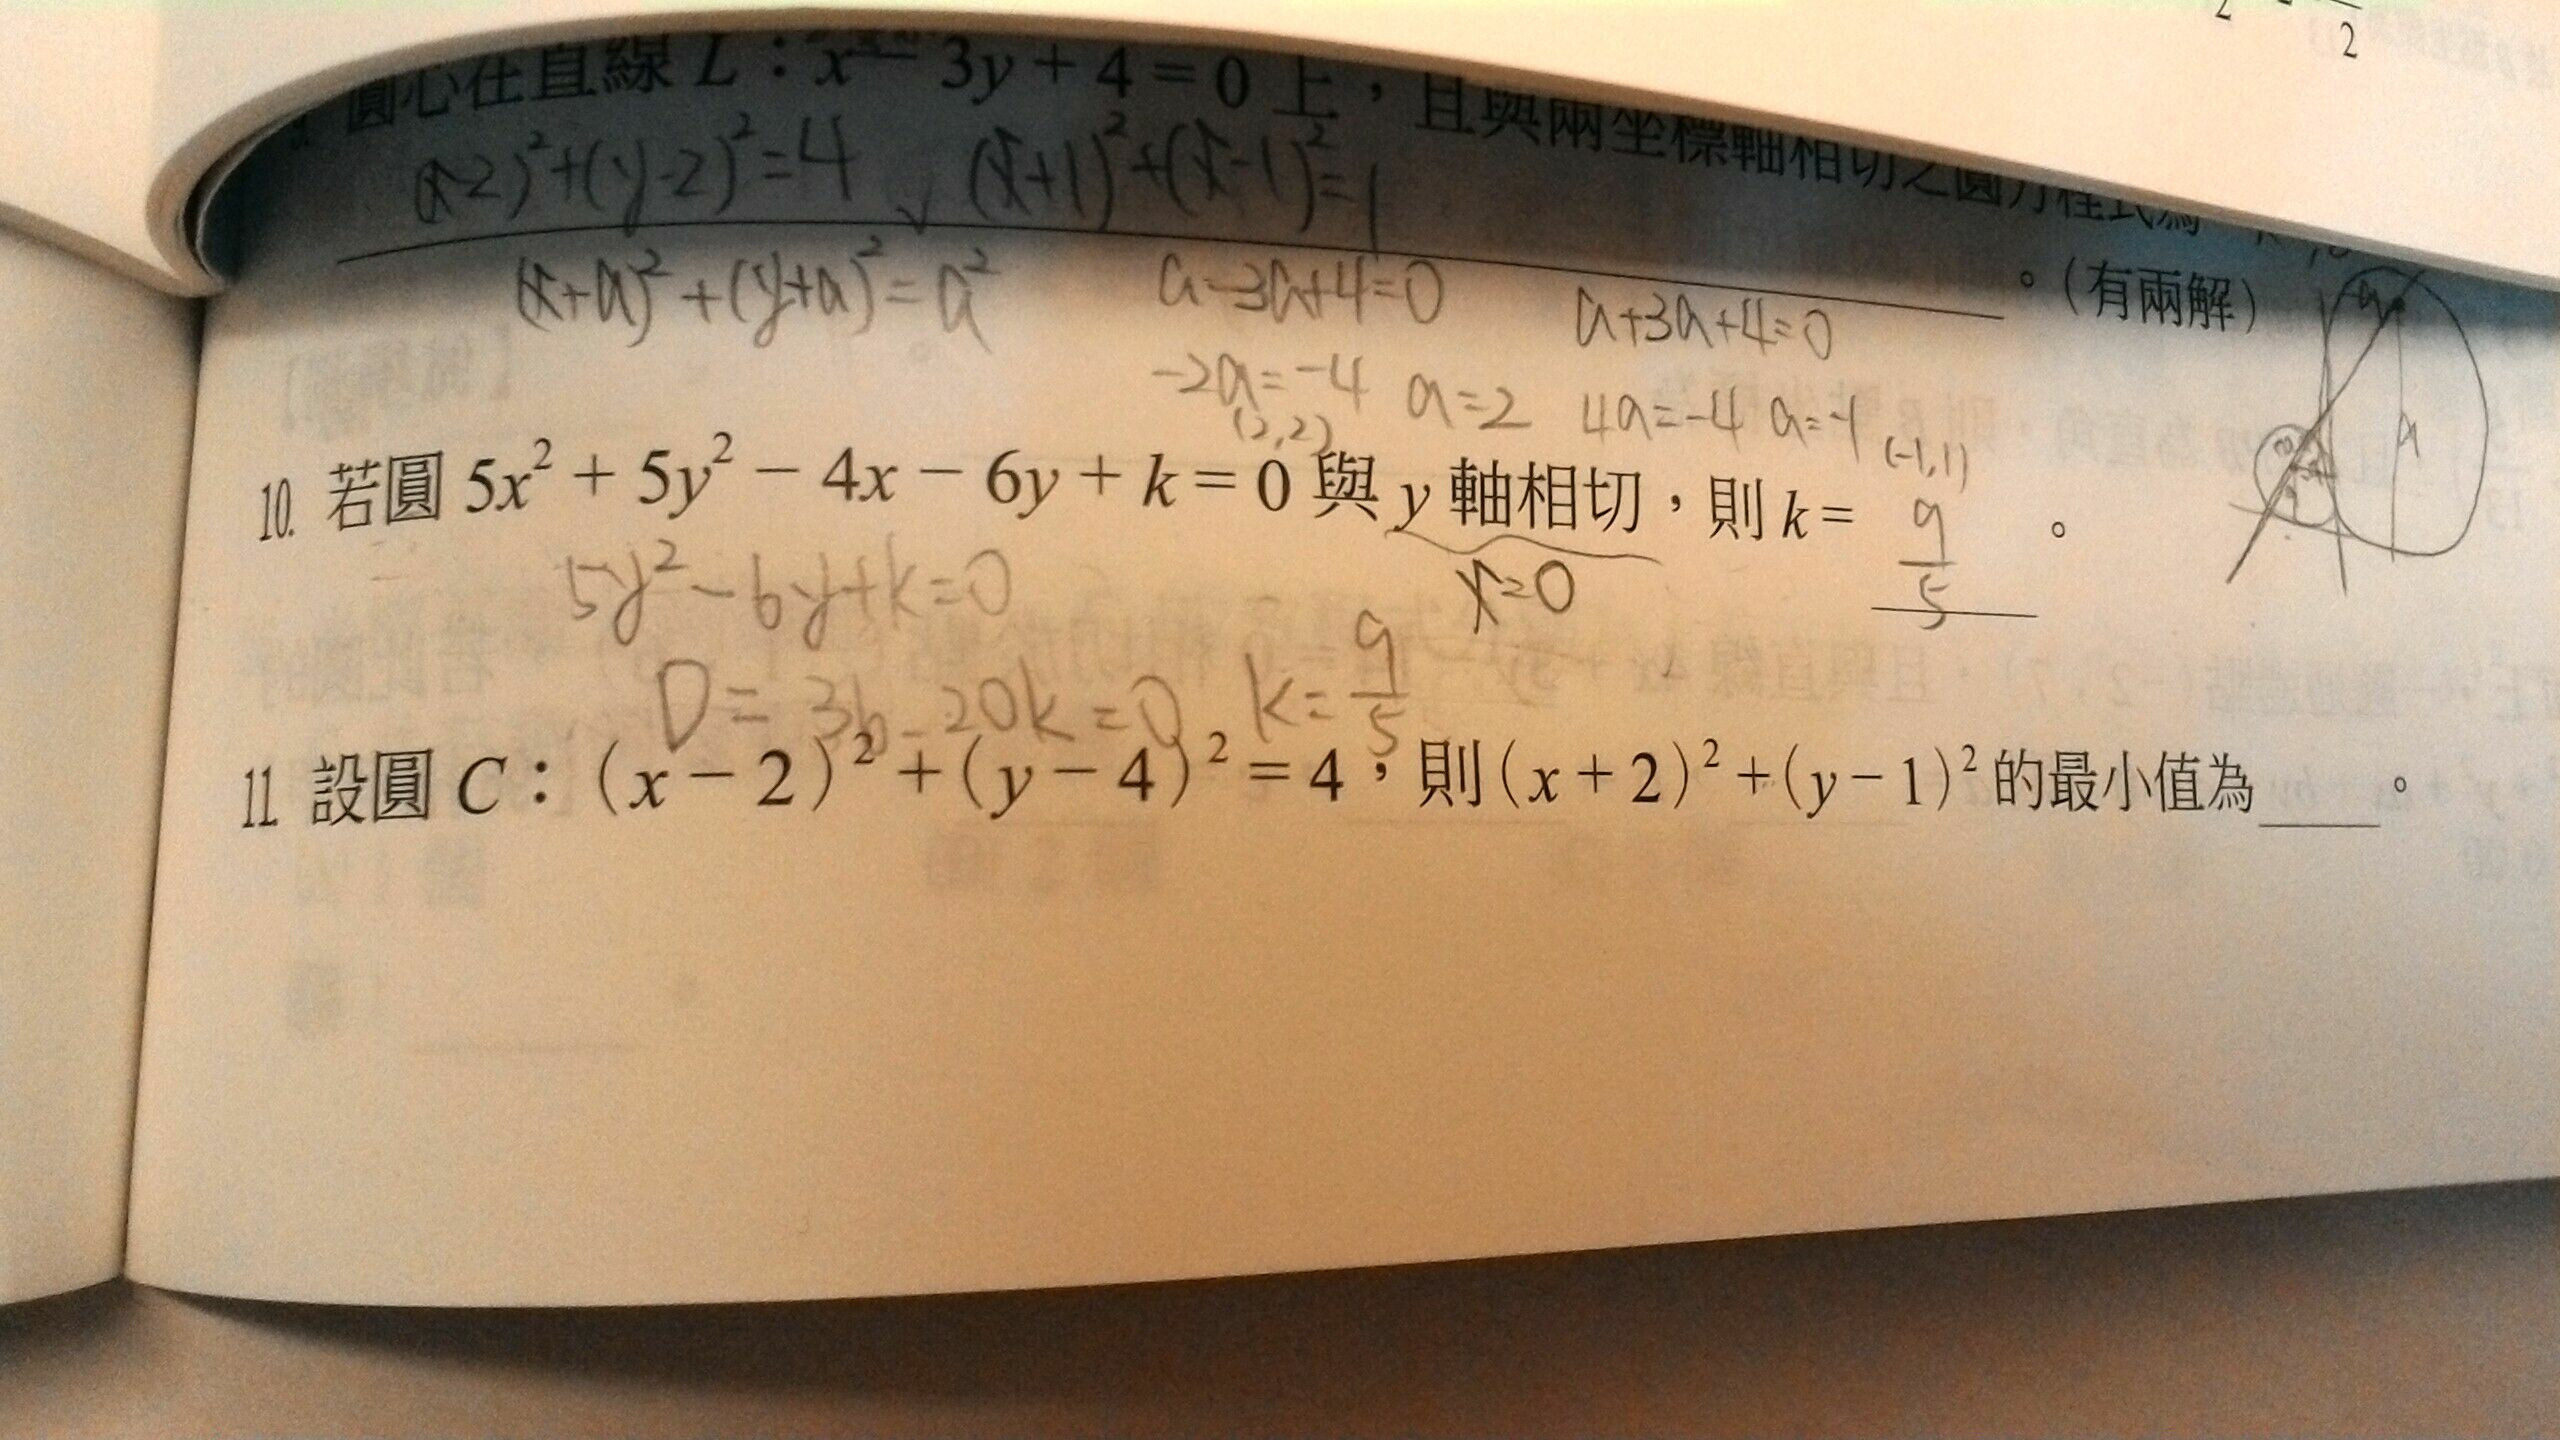 2
圓心在直線 L：x − 3y + 4 = 0 上，且與兩坐標軸相切之圓方程式為
(x-2)²+(y-2)²=4 ∨ (x+1)²+(x-1)²=1
。（有兩解）
(x+a)²+(y+a)²=a² a-3a+4=0 a+3a+4=0
-2a=-4 a=2 4a=-4 a=-1
(2,2) (-1,1)
10. 若圓 5x² + 5y² − 4x − 6y + k = 0 與 y 軸相切，則 k = 9/5 。
5y²-6y+k=0 x=0
D=36-20k=0 k=9/5
11. 設圓 C：(x − 2)² + (y − 4)² = 4，則 (x + 2)² + (y − 1)² 的最小值為____。